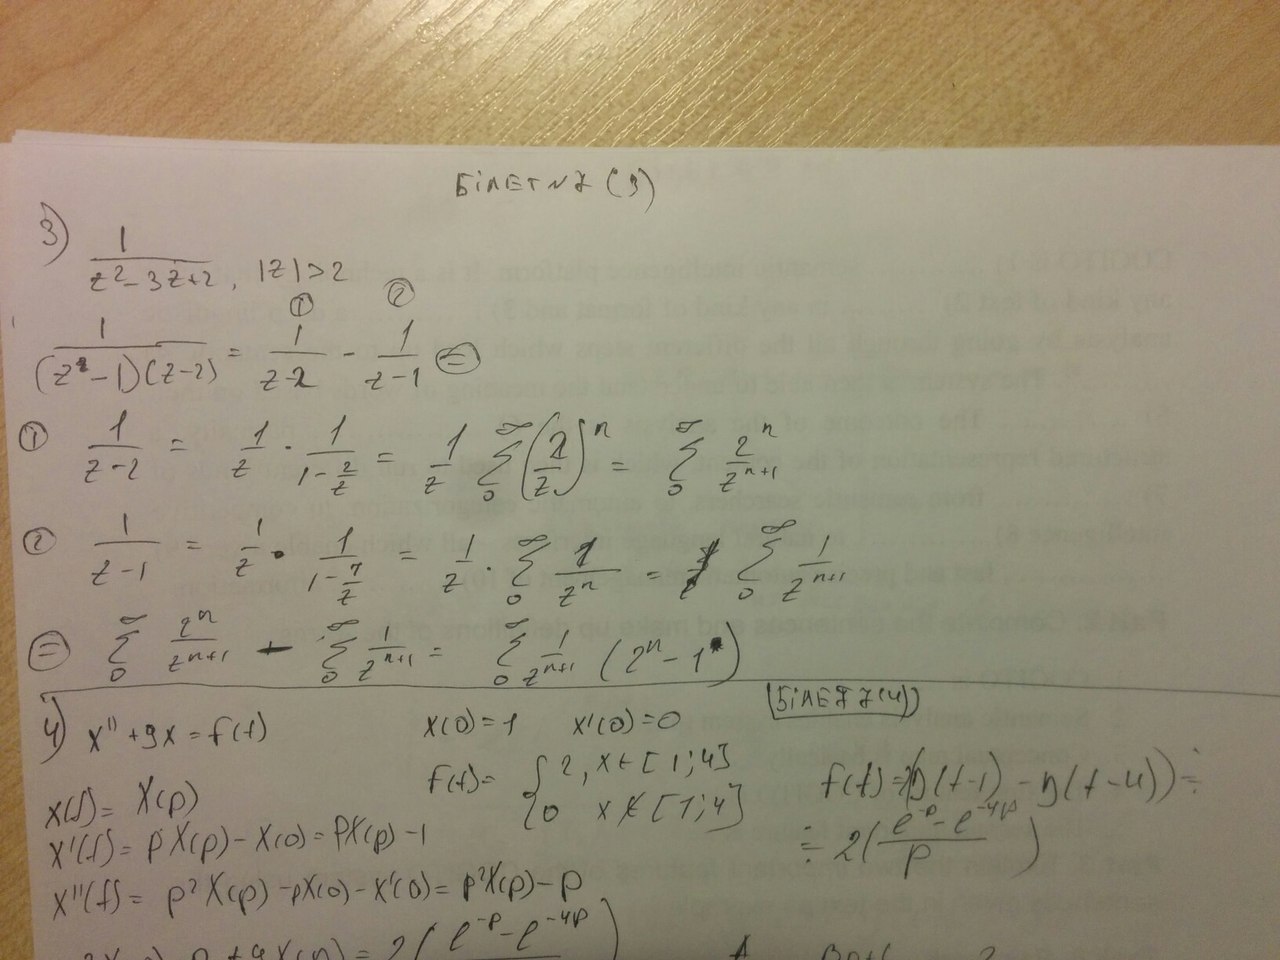 БІЛЕТ N 7 (3)
3) 1/(z² - 3z + 2), |z| > 2
① ②
1/((z - 1)(z - 2)) = 1/(z-2) - 1/(z-1) ⊜
① 1/(z-2) = 1/z · 1/(1 - 2/z) = 1/z ∑₀^∞ (2/z)^n = ∑₀^∞ 2^n/z^(n+1)
② 1/(z-1) = 1/z · 1/(1 - 1/z) = 1/z · ∑₀^∞ 1/z^n = ∑₀^∞ 1/z^(n+1)
⊜ ∑₀^∞ 2^n/z^(n+1) - ∑₀^∞ 1/z^(n+1) = ∑₀^∞ 1/z^(n+1) (2^n - 1)
БІЛЕТ 7(4)
4) x'' + 9x = f(t) x(0) = 1 x'(0) = 0
f(t) = { 2, x ∈ [1;4]
0 x ∉ [1;4]
f(t) = 2(η(t-1) - η(t-4)) ≓
≓ 2((e^(-p) - e^(-4p))/p)
x(t) = X(p)
x'(t) = pX(p) - x(0) = pX(p) - 1
x''(t) = p²X(p) - px(0) - x'(0) = p²X(p) - p
2(e^(-p) - e^(-4p)